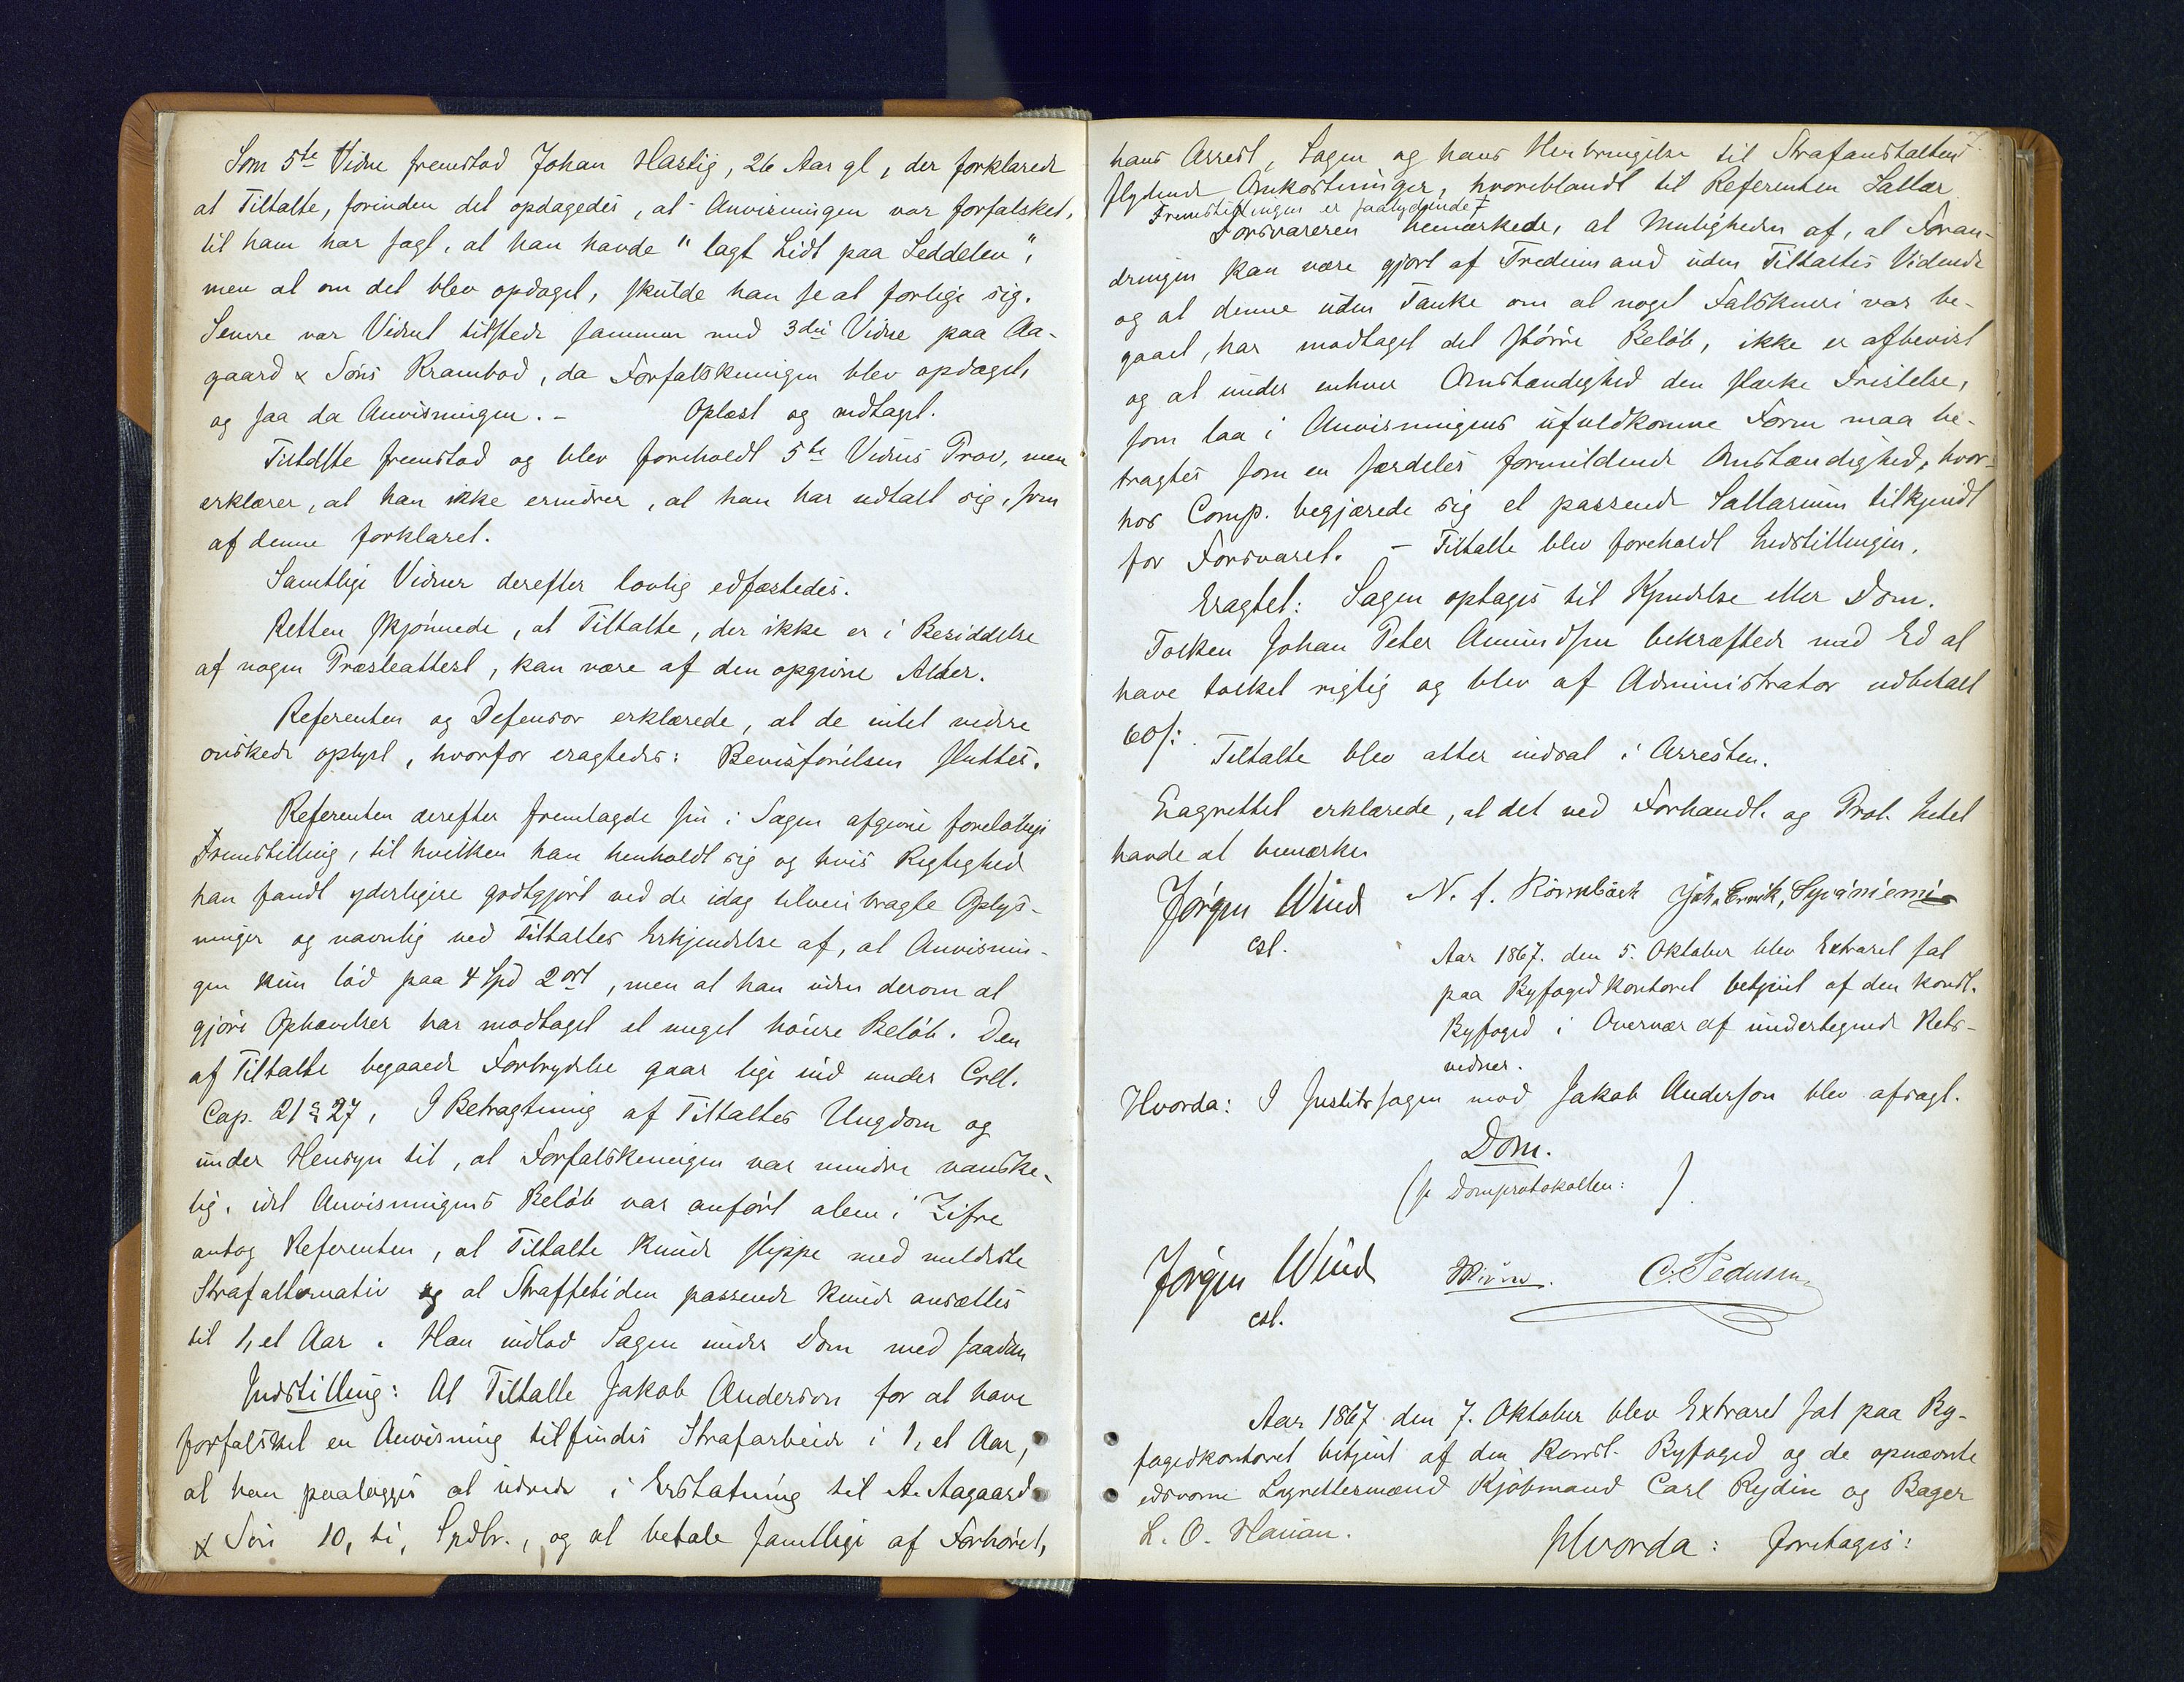 Som 5te Vidne fremstod Johan Hastig, 26 Aar gl, der forklarede
at Tiltalte, forinden det opdagedes, at Anvisningen var forfalsket,
til ham har sagt, at han havde "lagt Lidt paa Seddelen",
men at om det blev opdaget, skulde han se at forlige sig.
Senere var Vidnet tilstede sammen med 3die Vidne paa Aa-
gaard & Søns Krambod, da Forfalskningen blev opdaget,
og saa da Anvisningen. - Oplæst og vedtaget.
Tiltalte fremstod og blev foreholdt 5te Vidnes Prov, men
erklærer, at han ikke erindrer, at han har udtalt sig, som
af denne forklaret.
Samtlige Vidner derefter lovlig edfæstedes.
Retten skjønnede, at Tiltalte, der ikke er i Besiddelse
af nogen Præsteattest, kan være af den opgivne Alder.
Referenten og Defensor erklærede, at de intet videre
ønskede oplyst, hvorfor eragtedes: Bevisførelsen sluttes.
Referenten derefter fremlagde sin i Sagen afgivne foreløbige
Fremstilling, til hvilken han henholdt sig og hvis Rigtighed
han fandt yderligere godtgjort ved de idag tilveiebragte Oplys-
ninger og navnlig ved Tiltaltes Erkjendelse af, at Anvisnin-
gen kun lød paa 4 Spd 2 ort, men at han uden derom at
gjøre Ophævelser har modtaget et meget høiere Beløb. Den
af Tiltalte begaaede Forbrydelse gaar lige ind under Crl.
Cap. 21 § 27. I Betragtning af Tiltaltes Ungdom og
under Hensyn til, at Forfalskningen var mindre vanske-
lig, idet Anvisningens Beløb var anført alene i Zifre
antog Referenten, at Tiltalte kunde slippe med mildeste
Strafalternativ og at Straffetiden passende kunde ansættes
til 1, et Aar. Han indlod Sagen under Dom med saadan
Indstilling: At Tiltalte Jakob Anderson for at have
forfalsket en Anvisning tilfindes Strafarbeide i 1, et Aar,
at han paalægges at udrede i Erstatning til A. Aagaard
& Søn 10, ti, Spdlr., og at betale samtlige af Forhøret,
hans Arrest, Sagen og hans Henbringelse til Strafanstalten
flydende Omkostninger, hvoriblandt til Referenten Sallær
Fremstillingen er saalydende ‡
Forsvareren bemærkede, at Muligheden af, at Foran-
dringen kan være gjort af Trediemand uden Tiltaltes Vidende
og at denne uden Tanke om at noget Falskneri var be-
gaaet, har modtaget det større Beløb, ikke er afbevist
og at under enhver Omstændighed den stærke Fristelse,
som laa i Anvisningens ufuldkomne Form maa be-
tragtes som en særdeles formildende Omstændighed, hvor-
hos Comp. begjærede sig et passende Sallarium tilkjendt
for Forsvaret. - Tiltalte blev foreholdt Indstillingen.
Eragtet: Sagen optages til Kjendelse eller Dom.
Tolken Johan Peter Amundsen bekræftede med Ed at
have tolket rigtig og blev af Administrator udbetalt
60 s:
Tiltalte blev atter indsat i Arresten.
Lagrettet erklærede, at det ved Forhandl. og Prot. Intet
havde at bemærke
Jørgen Wind N. A. Rörnbäck Joh. Enrik, Sypäniemi
cst.
Aar 1867. den 5. Oktober blev Extraret sat
paa Byfogedkontoret betjent af den konst.
Byfoged i Overvær af undertegnede Rets-
vidner.
Hvorda: I Justitssagen mod Jakob Anderson blev afsagt.
Dom.
(se Domprotokollen: )
Jørgen Wind C. Pedersen
cst.
Aar 1867 den 7. Oktober blev Extraret sat paa By-
fogedkontoret betjent af den konst. Byfoged og de opnævnte
edsvorne Lagrettesmænd Kjøbmand Carl Rydin og Bager
L. O. Hauan. Hvorda: foretages: